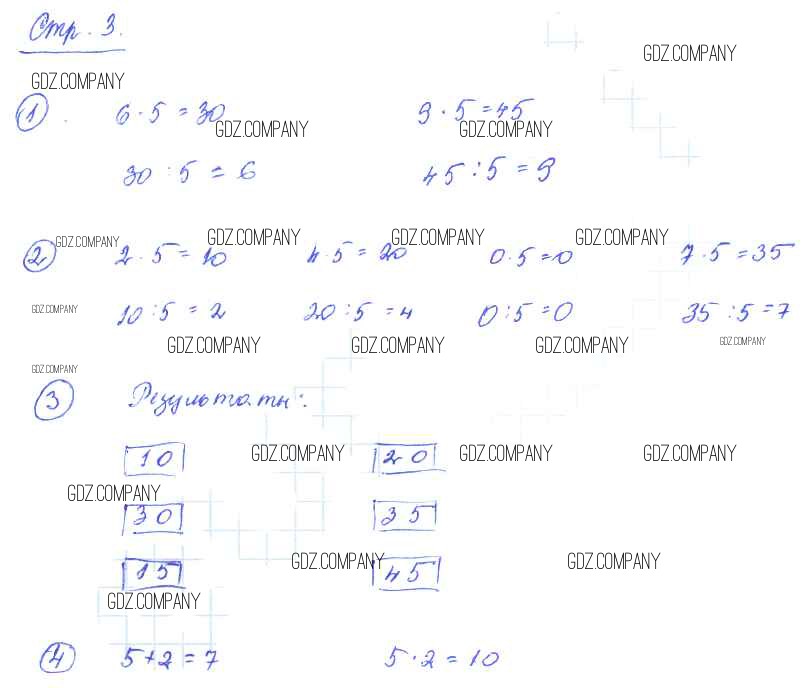 Стр. 3.
GDZ.COMPANY
GDZ.COMPANY
1. 6 · 5 = 30 9 · 5 = 45
GDZ.COMPANY GDZ.COMPANY
30 : 5 = 6 45 : 5 = 9
GDZ.COMPANY GDZ.COMPANY GDZ.COMPANY GDZ.COMPANY
2 2 · 5 = 10 4 · 5 = 20 0 · 5 = 0 7 · 5 = 35
GDZ.COMPANY
10 : 5 = 2 20 : 5 = 4 0 : 5 = 0 35 : 5 = 7
GDZ.COMPANY GDZ.COMPANY GDZ.COMPANY GDZ.COMPANY
GDZ.COMPANY
3 Результаты:
10 20
GDZ.COMPANY GDZ.COMPANY GDZ.COMPANY
GDZ.COMPANY
30 35
GDZ.COMPANY GDZ.COMPANY
15 45
GDZ.COMPANY
4 5 + 2 = 7 5 · 2 = 10